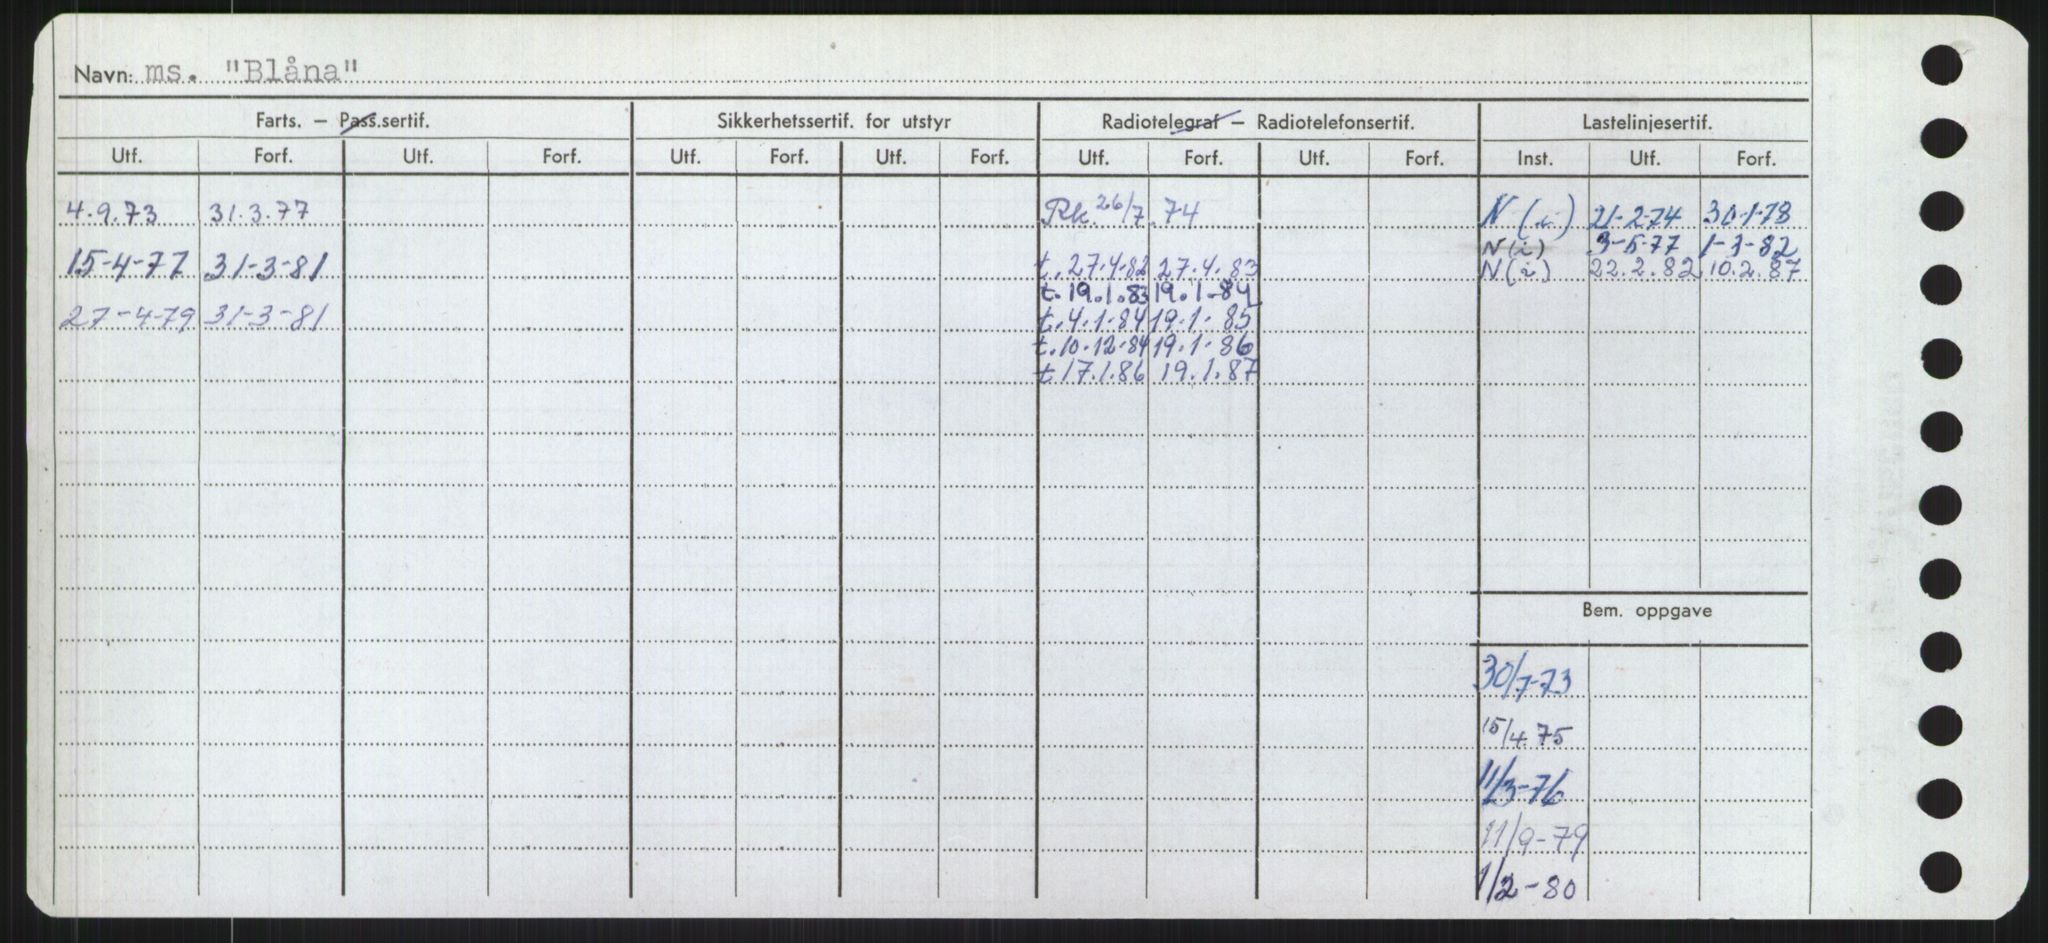 Navn: ms. "Blåna"
Farts. — Pass.sertif. Sikkerhetssertif. for utstyr Radiotelegraf — Radiotelefonsertif. Lastelinjesertif.
Utf. Forf. Utf. Forf. Utf. Forf. Utf. Forf. Utf. Forf. Utf. Forf. Inst. Utf. Forf.
4.9.73 31.3.77 Rk. 26/7. 74 N (i) 21-2-74 30-1-78
N (i) 3-5-77 1-3-82
15-4-77 31-3-81 t. 27.4.82 27.4.83 N (i) 22.2.82 10.2.87
t. 19.1.83 19.1-84
27-4-79 31-3-81 t. 4.1.84 19.1-85
t. 10-12-84 19.1-86
t 17.1.86 19.1.87
Bem. oppgave
30/7-73
15/4 75
11/3-76
11/9-79
1/2-80